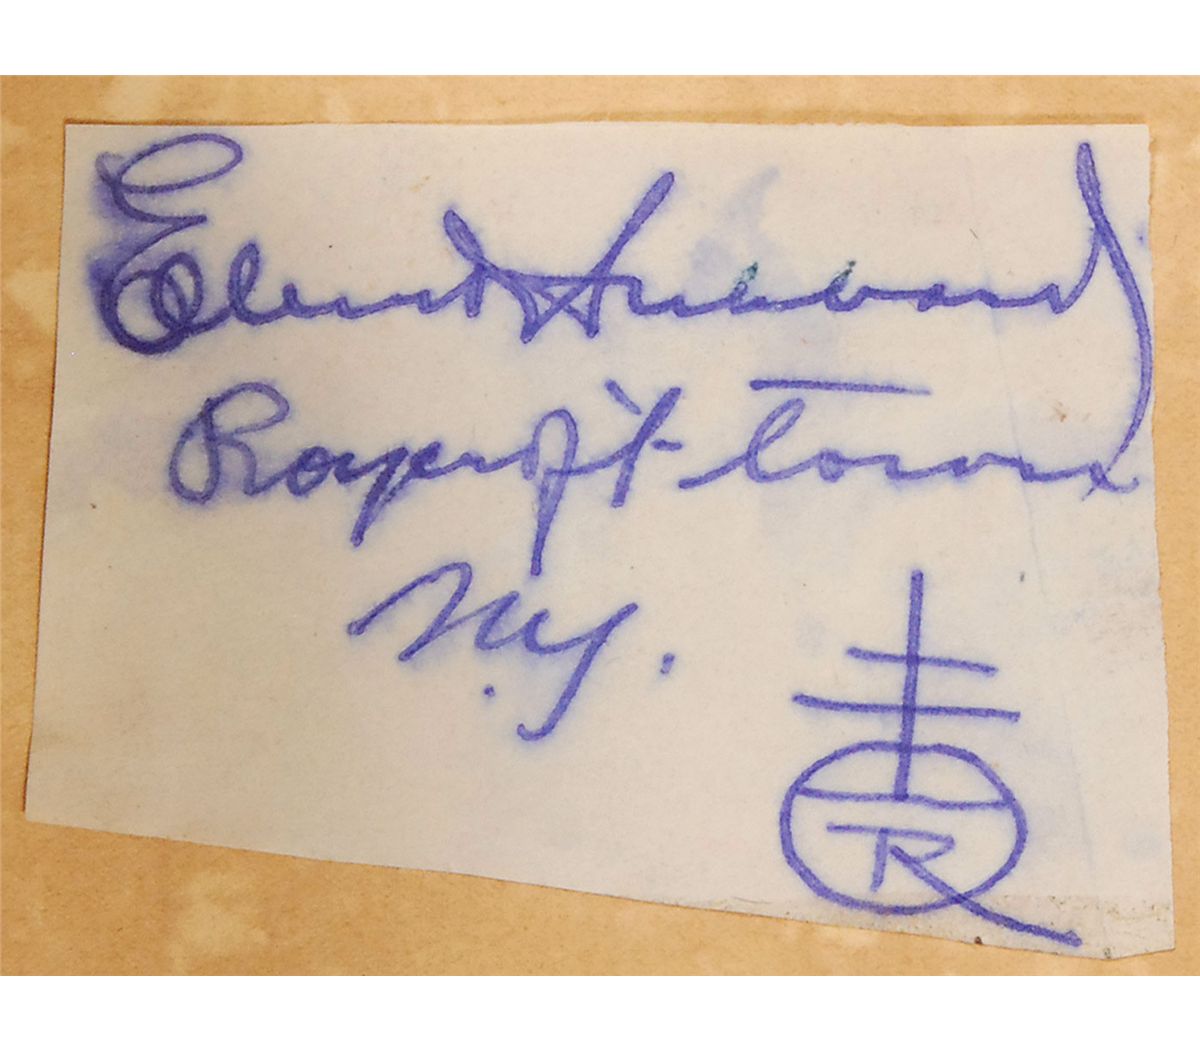 Elbert Hubbard
Roycroft-Town
N.Y.
R